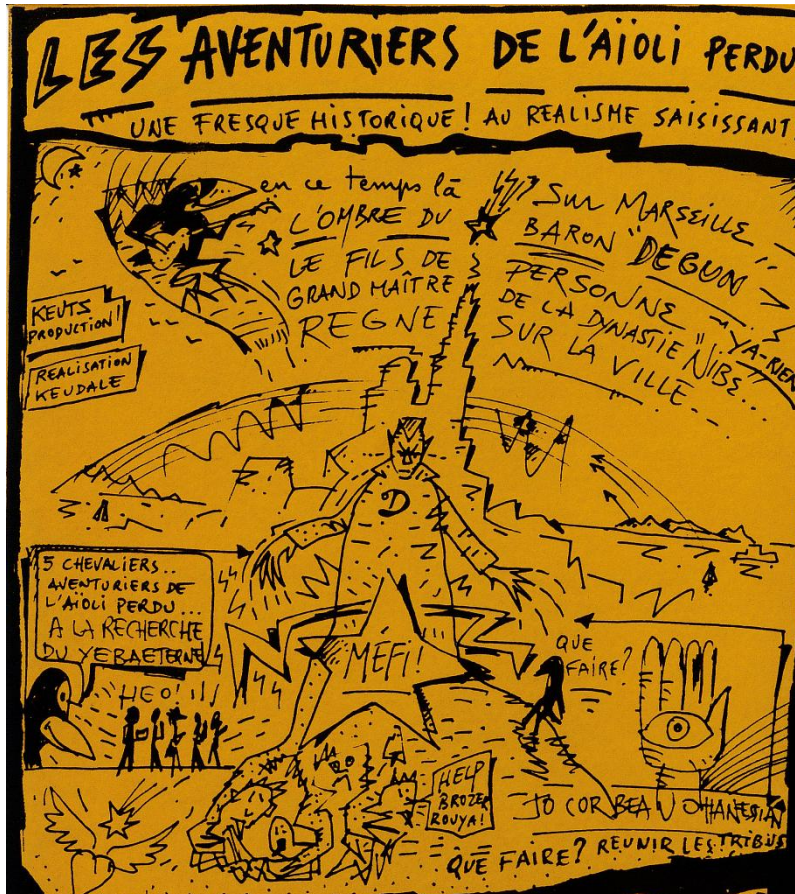 LES AVENTURIERS DE L'AÏOLI PERDU
UNE FRESQUE HISTORIQUE! AU REALISME SAISISSANT!
en ce temps là
L'OMBRE DU
LE FILS DE
GRAND MAÎTRE
REGNE
SUR MARSEILLE
BARON "DEGUN"
PERSONNE
DE LA DYNASTIE "NIBE"
YA-RIEN
SUR LA VILLE...
KEUTS
PRODUCTION!
REALISATION
KEUDALE
D
5 CHEVALIERS..
AVENTURIERS DE
L'AÏOLI PERDU...
A LA RECHERCHE
DU YEBAETERNE
HEO!
MÉFI!
QUE
FAIRE?
HELP
BROZER
ROUYA!
JO CORBEAU OHANESSIAN
QUE FAIRE? REUNIR LES TRIBUS